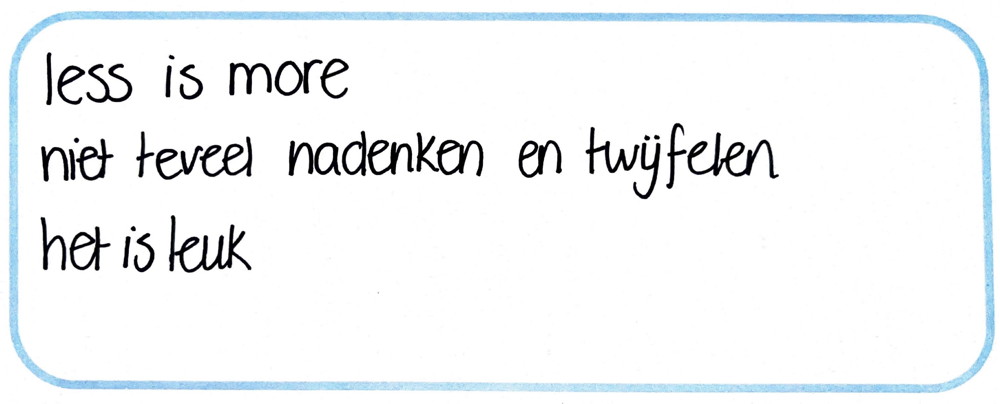 less is more
niet teveel nadenken en twijfelen
het is leuk